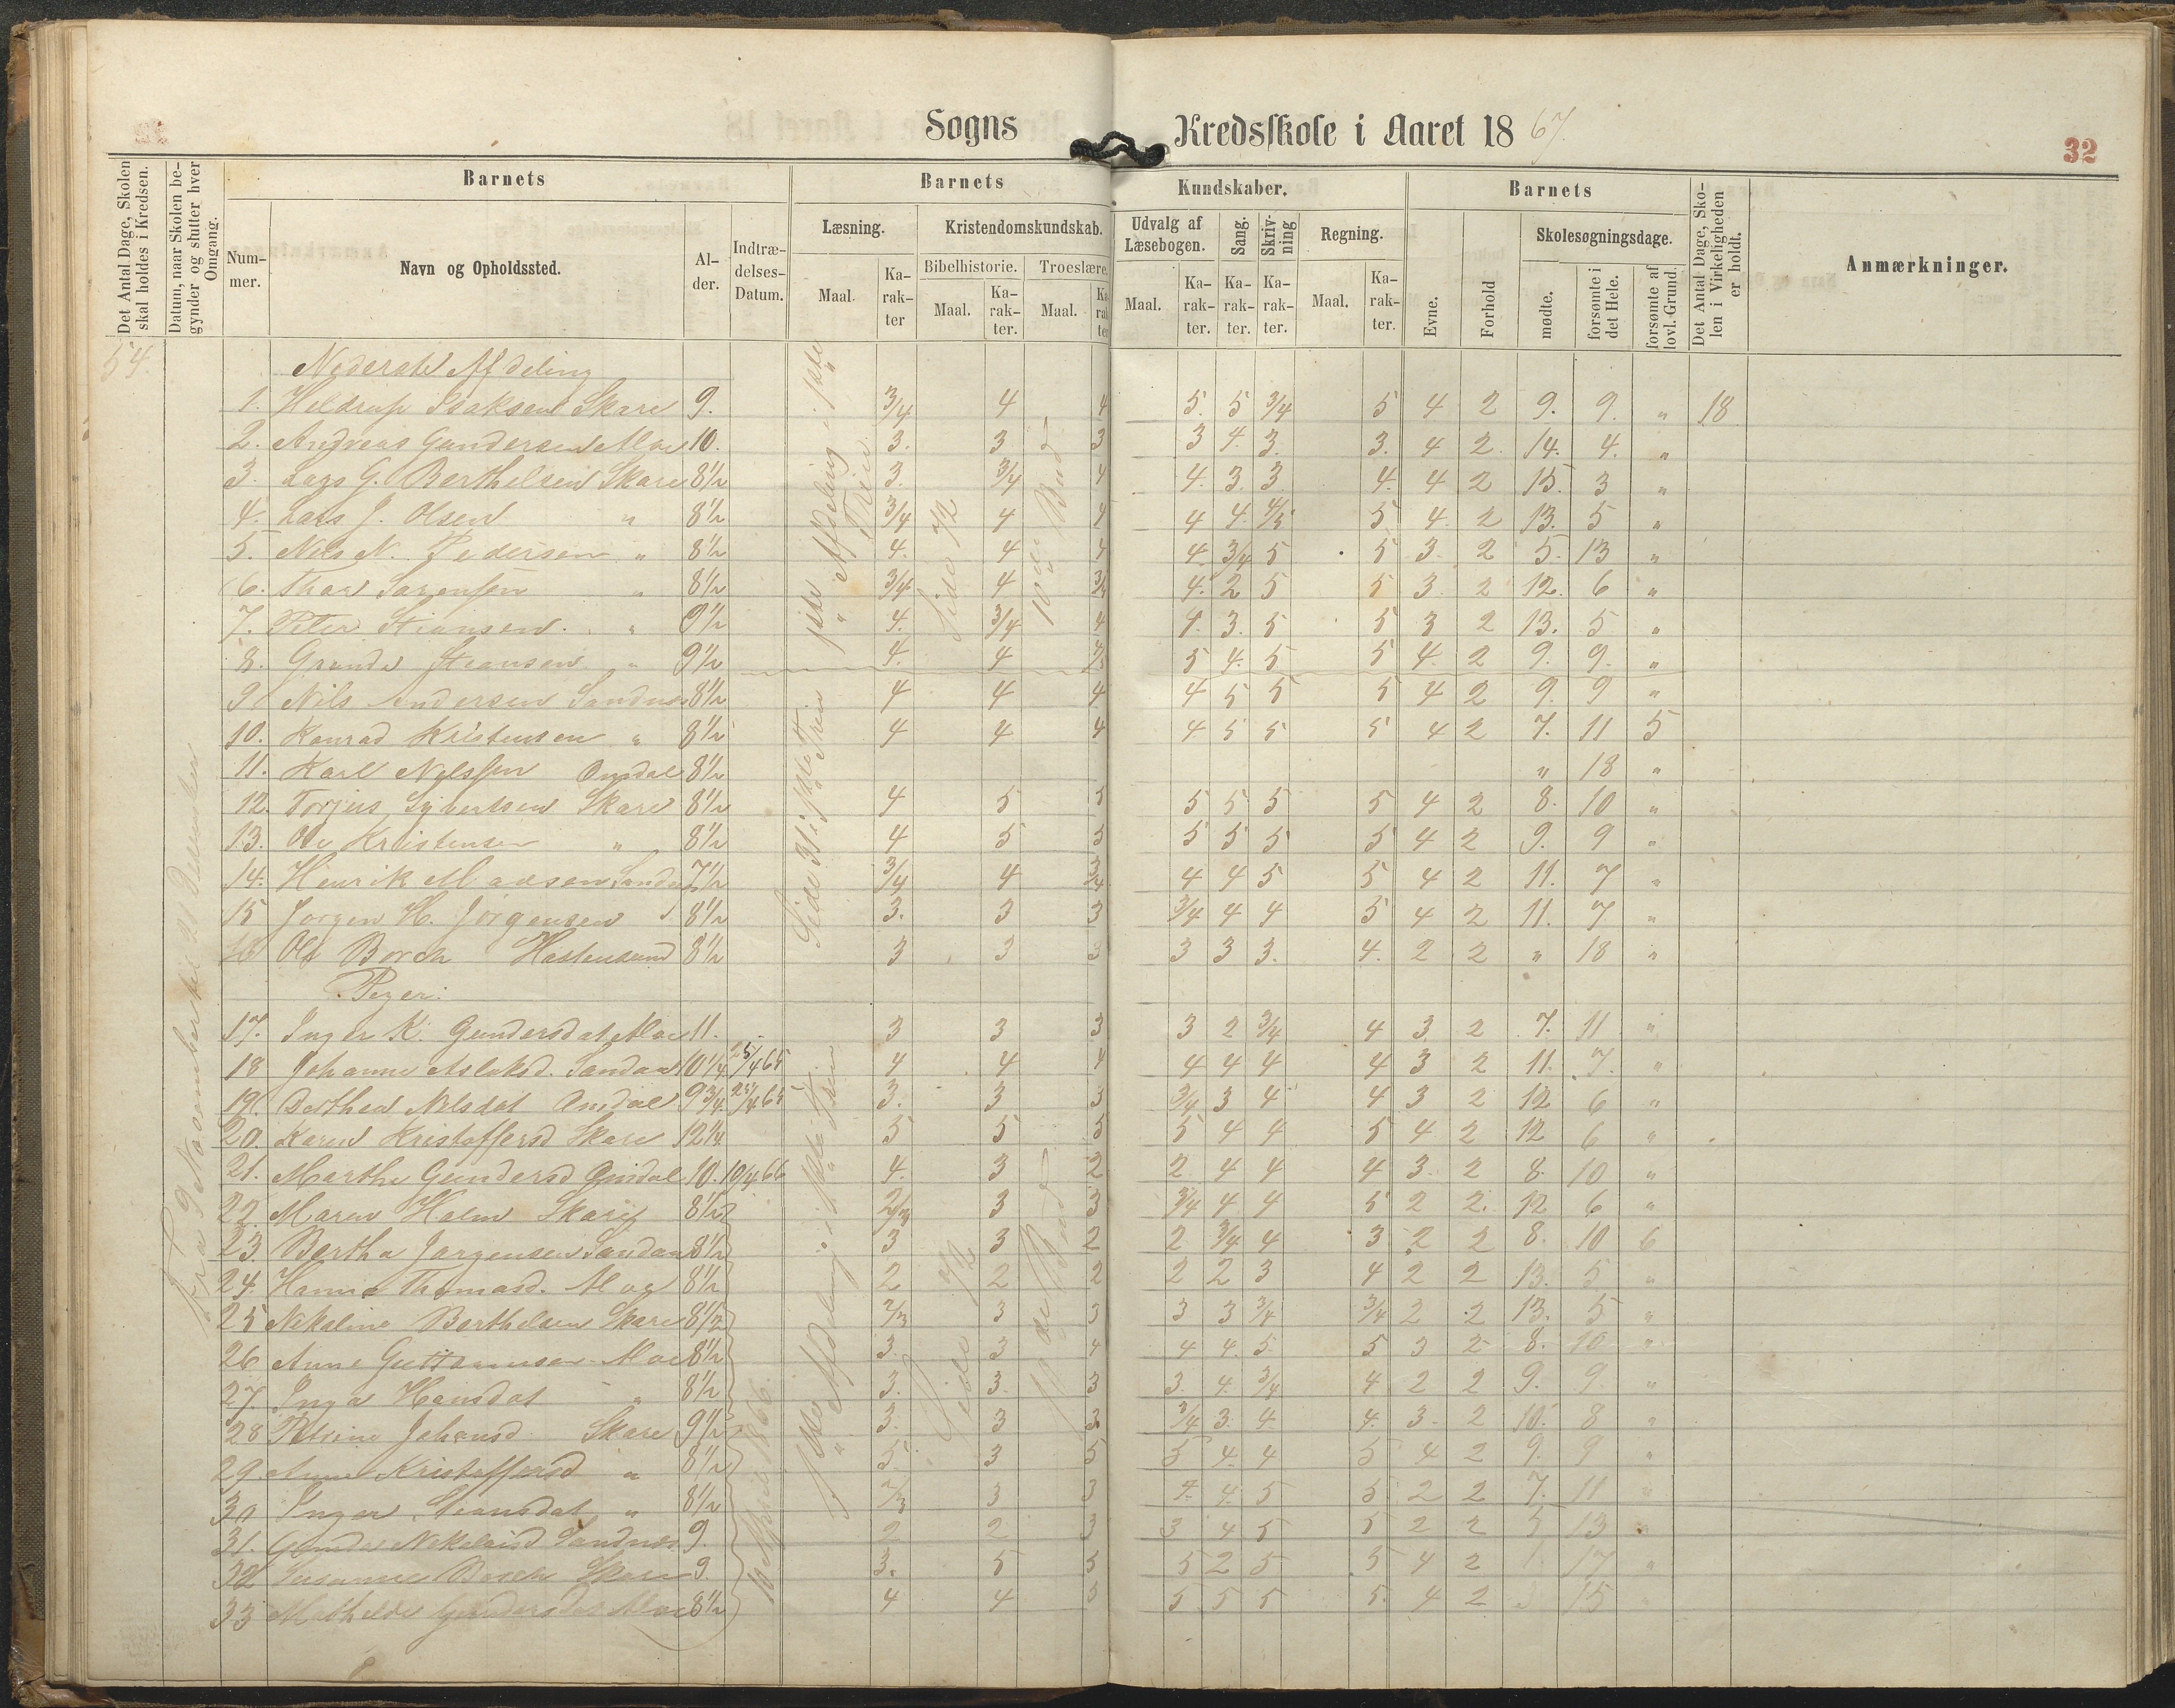 Sogns Kredsskole i Aaret 1867.
32
Det Antal Dage, Skolen skal holdes i Kredsen.
Datum, naar Skolen begynder og slutter hver Omgang.
Barnets
Nummer.
Navn og Opholdssted.
Alder.
Indtrædelses-Datum.
Barnets Kundskaber.
Læsning.
Maal.
Karakter
Kristendomskundskab.
Bibelhistorie.
Maal.
Karakter.
Troeslære.
Maal.
Karakter
Udvalg af Læsebogen.
Maal.
Karakter.
Sang.
Karakter.
Skrivning
Karakter.
Regning.
Maal.
Karakter.
Barnets
Evne.
Forhold
Skolesøgningsdage.
mødte.
forsømte i det Hele.
forsømte af lovl. Grund.
Det Antal Dage, Skolen i Virkeligheden er holdt.
Anmærkninger.
54.
Nederste Afdeling
1. Heldrup Isaksen Skare 9. 3/4 4 4 5. 5 3/4 5 4 2 9. 9. " 18
2. Andreas Gundersen Moe 10. 3. 3 3 3 4. 3. 3. 4 2. 14. 4. "
3. Lars G. Berthelsen Skare 8½ 3. 3/4 4 4. 3. 3 4. 4 2 15. 3 "
4. Lars J. Olsen " 8½ 3/4 4 4 4 4. 4/5 5 4. 2 13. 5 "
5. Nels N. Pedersen " 8½ 4. 4 4 4. 3/4 5 5 3. 2 5. 13 "
6. Thor Sørensen " 8½ 3/4 4 3/4 4. 2 5 5 3. 2 12. 6 "
7. Peter Stiansen " 9½ 4. 3/4 4 4. 3. 5 5 3 2 13. 5 "
8. Gunder Stiansen " 9½ 4. 4 4/5 5 4. 5 5 4. 2 9. 9. "
9 Nils Andersen Sandnes 8½ 4 4 4 4 5 5 5 4 2 9. 9 "
10. Konrad Kristensen " 8½ 4 4 4 4 5 5 5 4 2 7. 11 5
11. Karl Nelssen Omdal 8½ " 18 "
12. Torjus Syvertsen Skare 8½ 4 5 5 5 5 5 5 4 2 8. 10 "
13. Ole Kristensen " 8½ 4 5 5 5 5 5 5 4 2 9. 9 "
14. Henrik Madsen Sandnes 7½ 3/4 4 3/4 4 4 5 5 4 2 11. 7 "
15 Jørgen H. Jørgensen 8½ 3. 3 3 3/4 4 4 5 4 2 11. 7 "
16 Ole Borch Hastensund 8½ 3 3 3 3 3 3. 4. 2 2 " 18 "
Piger:
17. Inger K. Gundersdat. Moe 11. 3 3 3 3 2 3/4 4 3. 2 7. 11 "
18 Johanne Aslaksd. Sandnes 10¼ 25/4 65 4 4 4 4 4 4 4 3 2 11. 7. "
19. Berthea Nelsdat Omdal 9¾ 25/4 65 3. 3 3 3/4 3 4 4 3 2 12 6 "
20. Karen Kristoffersd Skare 12¼ 5 5 5 5 4 4 5 4 2 12 6 "
21. Marthe Gundersd Omdal 10. 10/4 66 4. 3 2 2 4 4 4 3. 2 8. 10 "
22. Maren Holm Skare 8½ 2/3 3 3 3/4 4 4 5 2 2. 12 6 "
23. Bertha Jørgensen Sandnes 8½ 3 3 2 2 3/4 4 3 2 2 8. 10 6
24. Hanna Thomasd. Moe 8½ 2 2 2 2 2 3 4 2 2 13. 5 "
25 Nikoline Berthelsen Skare 8½ 2/3 3 3 3 3 3/4 3/4 2 2 13. 5 "
26 Anne Guttormsen Moe 8½ 3. 3 4 4 4. 5 5 3 2 8. 10 "
27. Inga Hansdat " 8½ 3. 3. 3 3. 4. 3/4 4 2 2 9. 9. "
28 Petrine Johansd Skare 9½ 3. 3 3 3/4 3. 4 4. 3. 2 10. 8 "
29. Anne Kristoffersd " 8½ 5. 3 5 5 4. 4 5 4 2 9. 9 "
30 Inger Stiansdat " 8½ 2/3 3 3 4. 4. 5 5 2 2 7. 11 "
31. Nikolaisd Sandnes 9. 2 2 3 3 4 5 5 2 2 5 13 "
32 Susanne Borch Skare 9 3. 5 5 5 2 5 5 4 2 1. 17 "
33 Mathilde Gundersdat Moe 8½ 4 4 5 5 5 5 5. 4 2 3 15
Fra 9 November til 21 December
1ste Afdeling i 1ste Trin
Side 31 i 1ste Trin
Side 72
10de Bud
3 1ste Afdeling i 1ste Trin
Side 72
10de Bud
10 April 1866.